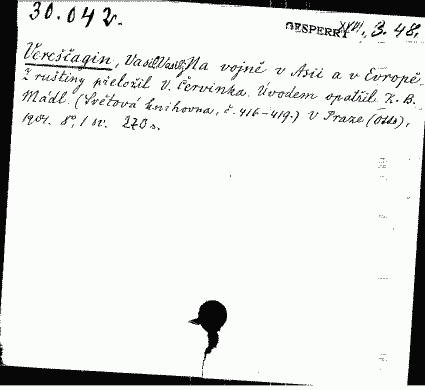 30.042.
GESPERRT XVII, 3.48.
Vereščagin, Vasil. Vasil., Na vojně v Asii a v Evropě.
Z ruštiny přeložil V. Červinka. Úvodem opatřil K. B.
Mádl. (Světová knihovna, č. 416-419.) V Praze (Otto),
1901. 8°, 1 sv. 270 s.